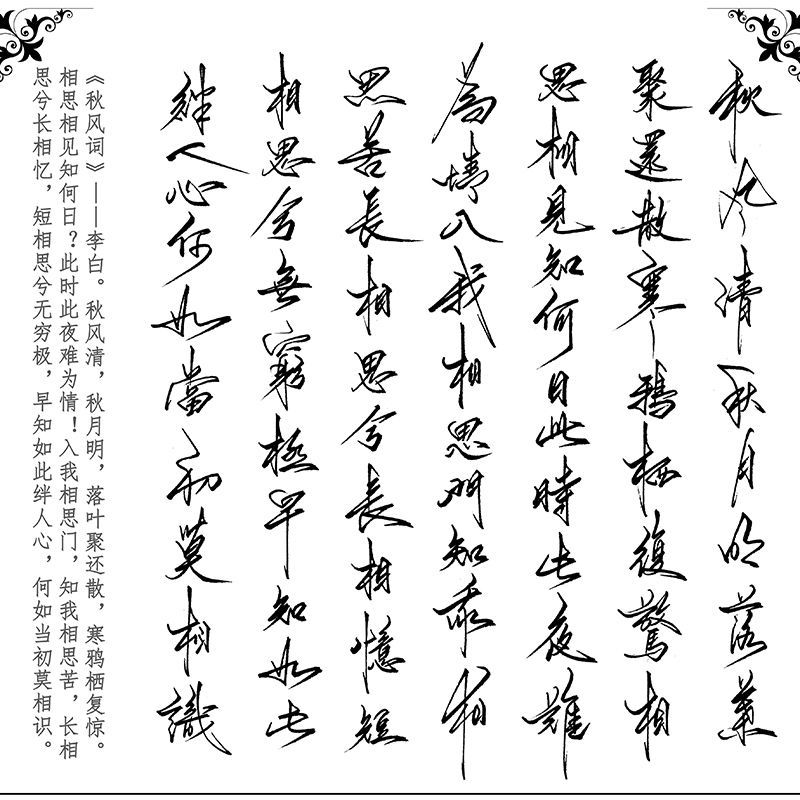 秋风清秋月明落葉
聚還散寒鴉栖復驚相
思相見知何日此時此夜難
為情入我相思門知我相
思苦長相思兮長相憶短
相思兮無窮極早知如此
絆人心何如當初莫相識
《秋风词》——李白。秋风清，秋月明，落叶聚还散，寒鸦栖复惊。
相思相见知何日？此时此夜难为情！入我相思门，知我相思苦，长相
思兮长相忆，短相思兮无穷极，早知如此绊人心，何如当初莫相识。